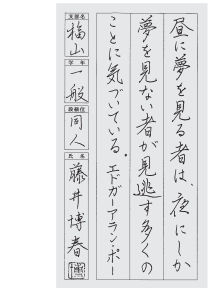 昼に夢を見る者は、夜にしか
夢を見ない者が見逃す多くの
ことに気づいている。エドガーアラン・ポー
支部名
福山
学年
一般
段級位
同人
氏名
藤井博春